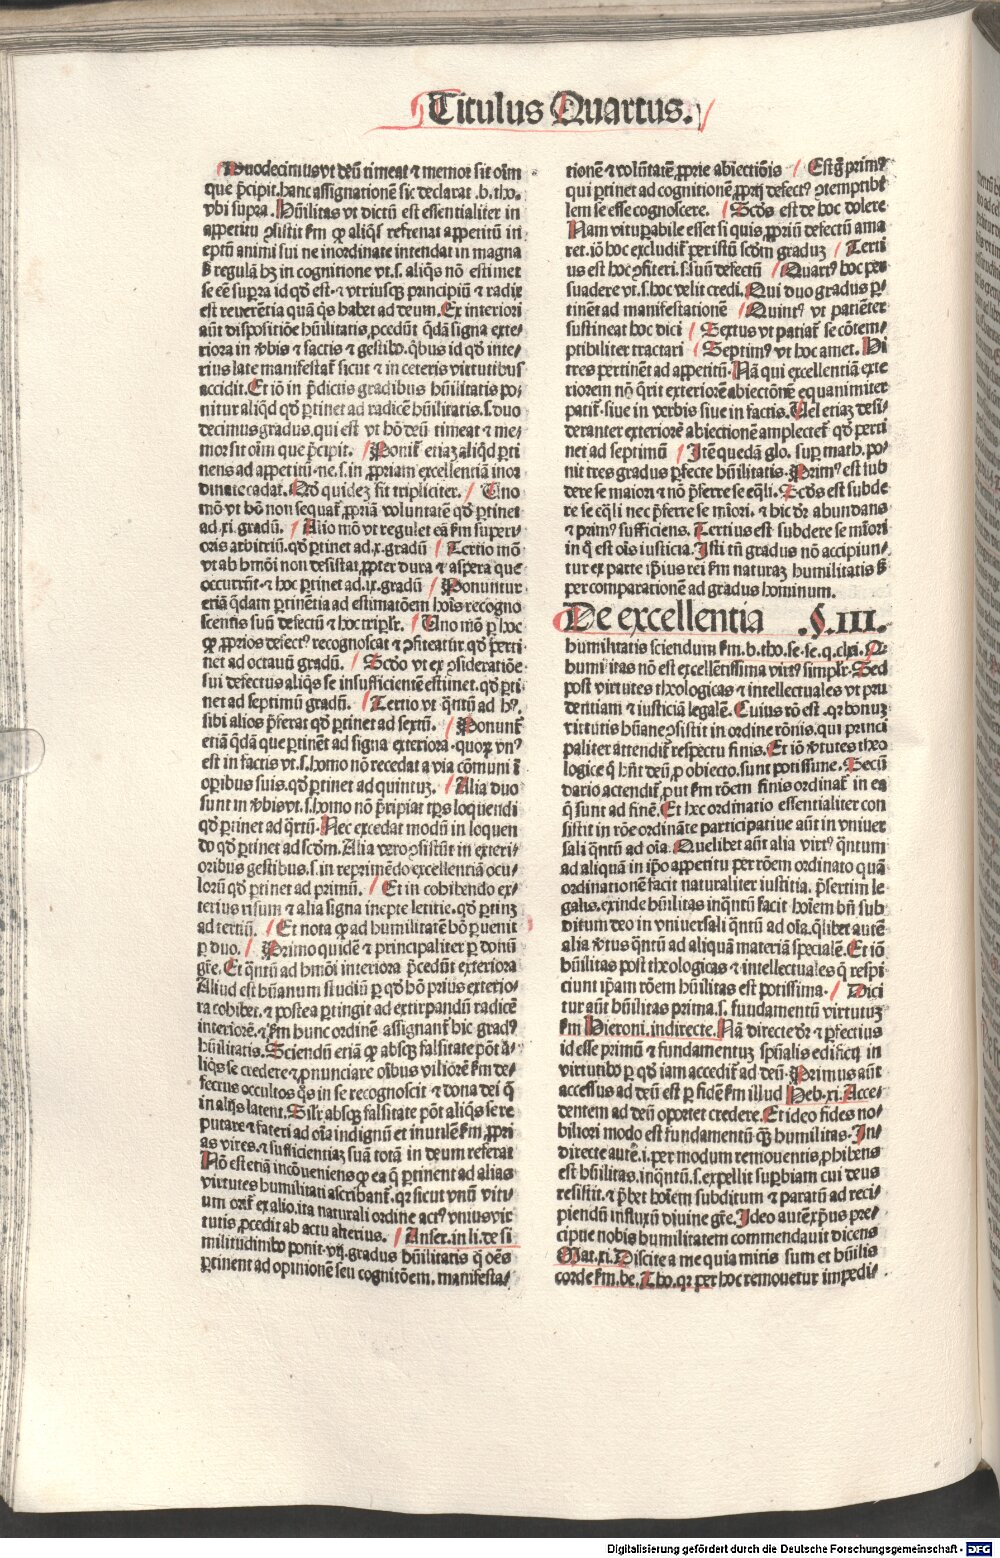 Titulus Quartus.
Duodecimus vt deū timeat ⁊ memor sit oīm
que p̄cipit. hanc assignationē sic declarat .b. tho.
vbi supra. Hūilitas vt dictū est essentialiter in
appetitu ꝯsistit ẜm ꝙ aliq̄s refrenat appetitū in
eptū animi sui ne inordinate intendat in magna
ẞ regulā hꝫ in cognitione vt .s. aliq̄s nō estimet
se eē supra id qd̄ est. ⁊ vtriusqꝫ principiū ⁊ radix
est reuerētia quā q̄s habet ad deum. Ex interiori
aūt dispositiōe hūilitatis ꝓcedūt q̄dā signa exte⸗
riora in v̄bis ⁊ factis ⁊ gestibꝰ. q̄bus id qd̄ inte⸗
rius late manifestat̄ sicut ⁊ in ceteris virtutibus
accidit. Et iō in p̄dictis gradibus hūilitatis po⸗
nitur aliqd̄ qd̄ ꝑtinet ad radicē hūilitatis .s. duo
decimus gradus. qui est vt hō deū timeat ⁊ me⸗
mor sit oīm que p̄cipit. Ponit̄ etiaꝫ aliqd̄ ꝑti
nens ad appetitū. ne .s. in ꝓpriam excellentiā inor
dinate tendat. Qd̄ quideꝫ fit tripliciter. Uno
mō vt hō non sequat̄ ꝓpriā voluntatē qd̄ ꝑtinet
ad .xi. gradū. Alio mō vt regulet eā ẜm superi⸗
oris arbitriū. qd̄ ꝑtinet ad .x. gradū Tertio mō
vt ab hmōi non desistat ꝓpter dura ⁊ aspera que
occurrūt. ⁊ hoc ꝑtinet ad .ix. gradū Ponuntur
etiā q̄dam ꝑtinētia ad estimatōem hoīs recogno
scentis suū defectū ⁊ hoc triplr̄. Uno mō ꝑ hoc
ꝙ ꝓprios defectꝰ recognoscat ⁊ ꝯfiteatur qd̄ ꝑti
net ad octauū gradū. Scd̄o vt ex ꝯsideratiōe
sui defectus aliq̄s se insufficientē estimet. qd̄ ꝑti
net ad septimū gradū. Tertio vt q̄ntū ad hꝰ.
sibi alios p̄ferat qd̄ ꝑtinet ad sextū. Ponunt̄
etiā q̄dā que ꝑtinēt ad signa exteriora. quoꝝ vnꝰ
est in factis vt .s. homo nō recedat a via cōmuni ī
oꝑibus suis. qd̄ ꝑtinet ad quintuꝫ. Alia duo
sunt in v̄bis vt .s. homo nō p̄ripiat tp̄s loquendi
qd̄ ꝑtinet ad q̄rtū. Nec excedat modū in loquen
do qd̄ ꝑtinet ad scd̄m. Alia vero ꝯsistūt in exteri⸗
oribus gestibus .s. in reprimēdo excellentiā ocu⸗
lorū qd̄ ꝑtinet ad primū. Et in cohibendo ex⸗
terius risum ⁊ alia signa inepte letitie. qd̄ ꝑtinꝫ
ad tertiū. Et nota ꝙ ad humilitatē hō ꝑuenit
ꝑ duo. Primo quidē ⁊ principaliter ꝑ donū
gr̄e. Et q̄ntū ad hmōi interiora p̄cedūt exteriora
Aliud est hūanum studiū ꝑ qd̄ hō prius exterio⸗
ra cohibet. ⁊ postea ꝑtingit ad extirpandū radicē
interiorē. ⁊ ẜm hunc ordinē assignant̄ hic gradꝰ
hūilitatis. Sciendū etiā ꝙ absqꝫ falsitate pōt a⸗
liq̄s se credere ⁊ ꝓnunciare oībus viliorē ẜm de⸗
fectus occultos q̄s in se recognoscit ⁊ dona dei q̄
in aliis latent. Silr̄ absqꝫ falsitate pōt aliq̄s se re
putare ⁊ fateri ad oīa indignū et inutilē ẜm ꝓpri
as vires. ⁊ sufficientiaꝫ suā totā in deum referat
Nō est etiā incōueniens ꝙ ea q̄ ꝑtinent ad alias
virtutes humilitati ascribant̄. qꝛ sicut vnū viti
um orit̄ ex alio. ita naturali ordine actꝰ vnius vir
tutis ꝓcedit ab actu alterius. Anser. in li. de si
militudinibꝰ ponit .vij. gradus hūilitatis q̄ oēs
ꝑtinent ad opinionē seu cognitōem. manifesta⸗
tionē ⁊ volūtatē ꝓprie abiectiōis Est g̊ primꝰ
qui ꝑtinet ad cognitionē ꝓprij defectꝰ ꝯtemptibi
lem se esse cognoscere. Scd̄s est de hoc dolere
Nam vituꝑabile esset si quis ꝓpriū defectū ama
ret. iō hoc excludit̄ per istū scd̄m graduꝫ Terti
us est hoc ꝯfiteri .s. suū defectū Quartꝰ hoc per
suadere vt .s. hoc velit credi. Qui duo gradus ꝑ⸗
tinēt ad manifestationē Quintꝰ vt patiēter
sustineat hoc dici Sextus vt patiat̄ se cōtem⸗
ptibiliter tractari Septimꝰ vt hoc amet. Hi
tres pertinēt ad appetitū. Nā qui excellentiā exte
riorem nō q̄rit exteriorē abiectōnē equanimiter
patit̄. siue in verbis siue in factis. Uel etiaꝫ desi⸗
deranter exteriorē abiectionē amplectet̄ qd̄ perti
net ad septimū Itē quedā glo. suꝑ math. po⸗
nit tres gradus ꝑfecte hūilitatis. Primꝰ est sub
dere se maiori ⁊ nō p̄ferre se eq̄li. Scd̄s est subde
re se eq̄li nec p̄ferre se mīori. ⁊ hic dr̄ abundans
⁊ primꝰ sufficiens. Tertius est subdere se mīori
in q̄ est oīs iusticia. Isti tn̄ gradus nō accipiun⸗
tur ex parte ip̄ius rei ẜm naturaꝫ humilitatis ẞ
per comparationem ad gradus hominum.
De excellentia .§.III.
humilitatis sciendum ẜm .b. tho. se. se. q. clxi. Q̄
humilitas nō est excellētissima virtꝰ simplr̄. Sed
post virtutes theologicas ⁊ intellectuales vt pru
dentiam ⁊ iusticiā legalē. Cuius rō est. qꝛ bonuꝫ
virtutis hūane ꝯsistit in ordine rōnis. qui princi
paliter attendit̄ respectu finis. Et iō v̄tutes theo
logice q̄ hn̄t deū ꝓ obiecto. sunt potissime. Secū
dario actendit̄ put ẜm rōem finis ordinat̄ in ea
q̄ sunt ad finē. Et hec ordinatio essentialiter con
sistit in rōe ordināte participatiue aūt in vniuer
sali q̄ntū ad oīa. Quelibet aūt alia virtꝰ q̄ntum
ad aliquā in ip̄o appetitu per rōem ordinato quā
ordinationē facit naturaliter iustitia. p̄sertim le
galis. exinde hūilitas inq̄ntū facit hoīem bn̄ sub
ditum deo in vniuersali q̄ntū ad oīa. q̄libet autē
alia v̄tus q̄ntū ad aliquam materiā specialē. Et iō
hūilitas post theologicas ⁊ intellectuales q̄ respi
ciunt ip̄am rōem hūilitas est potissima. Dici
tur aūt hūilitas prima .s. fundamentū virtutuꝫ
ẜm Hieroni. indirecte. Nā directe dr̄ ⁊ ꝑfectius
id esse primū ⁊ fundamentuꝫ spūalis edificij in
virtutibꝰ ꝑ qd̄ iam accedit̄ ad deū. Primus aūt
accessus ad deū est ꝑ fidē ẜm illud Heb. xi. Acce⸗
dentem ad deū oportet credere. Et ideo fides no⸗
biliori modo est fundamentū q̄ꝫ humilitas. In⸗
directe autē .i. per modum remouentis ꝓhibens
est hūilitas. inq̄ntū .s. expellit suꝑbiam cui deus
resistit. ⁊ p̄bet hoīem subditum ⁊ paratū ad reci⸗
piendū influxū diuine gr̄e. Ideo autē xp̄us pre⸗
cipue nobis humilitatem commendauit dicens
Mat. xi. Discite a me quia mitis sum et hūilis
corde ẜm be. Tho. qꝛ per hoc remouetur impedi⸗
Digitalisierung gefördert durch die Deutsche Forschungsgemeinschaft - DFG